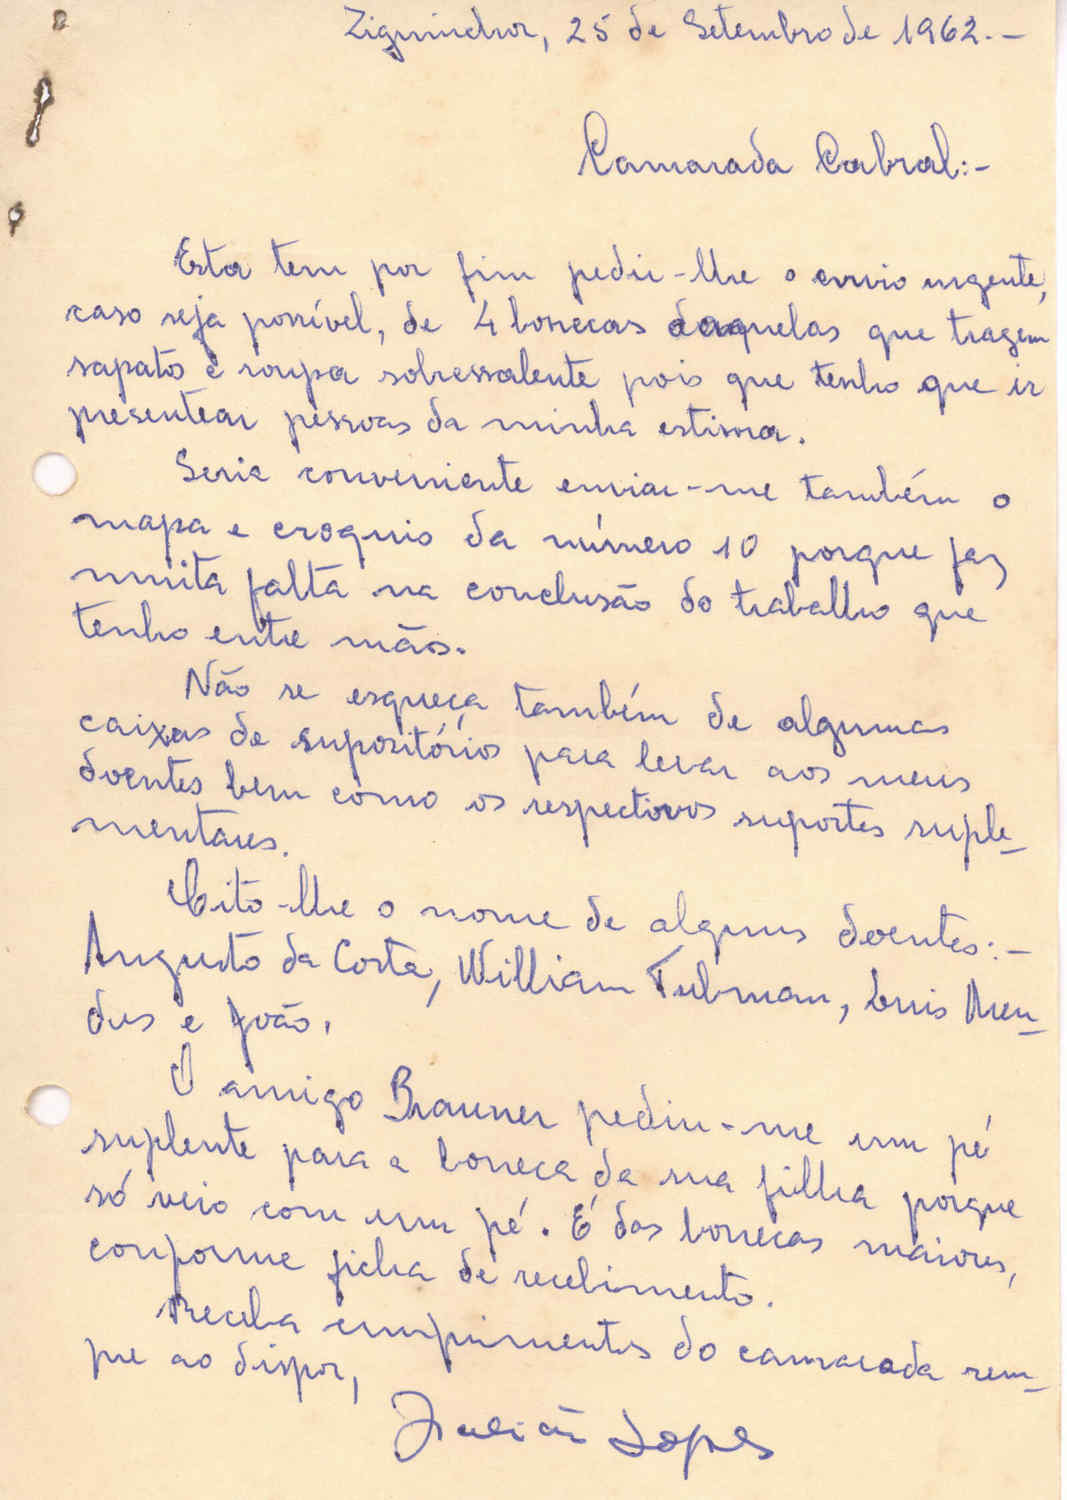 Ziguinchor, 25 de Setembro de 1962.-
Camarada Cabral:-
Esta tem por fim pedir-lhe o envio urgente,
caso seja possível, de 4 bonecas daquelas que tragem
sapatos e roupa sobressalente pois que tenho que ir
presentear pessoas da minha estima.
Seria conveniente enviar-me também o
mapa e croquis da número 10 porque faz
muita falta na conclusão do trabalho que
tenho entre mãos.
Não se esqueça também de algumas
caixas de supositórios para levar aos meus
doentes bem como os respectivos suportes suple-
mentares.
Cito-lhe o nome de alguns doentes:-
Augusto da Costa, William Tubman, Luis Men-
des e João.
O amigo Brauner pediu-me um pé
suplente para a boneca da sua filha porque
só veio com um pé. É das bonecas maiores,
conforme ficha de recebimento.
Receba cumprimentos do camarada sem-
pre ao dispor,
Lopes